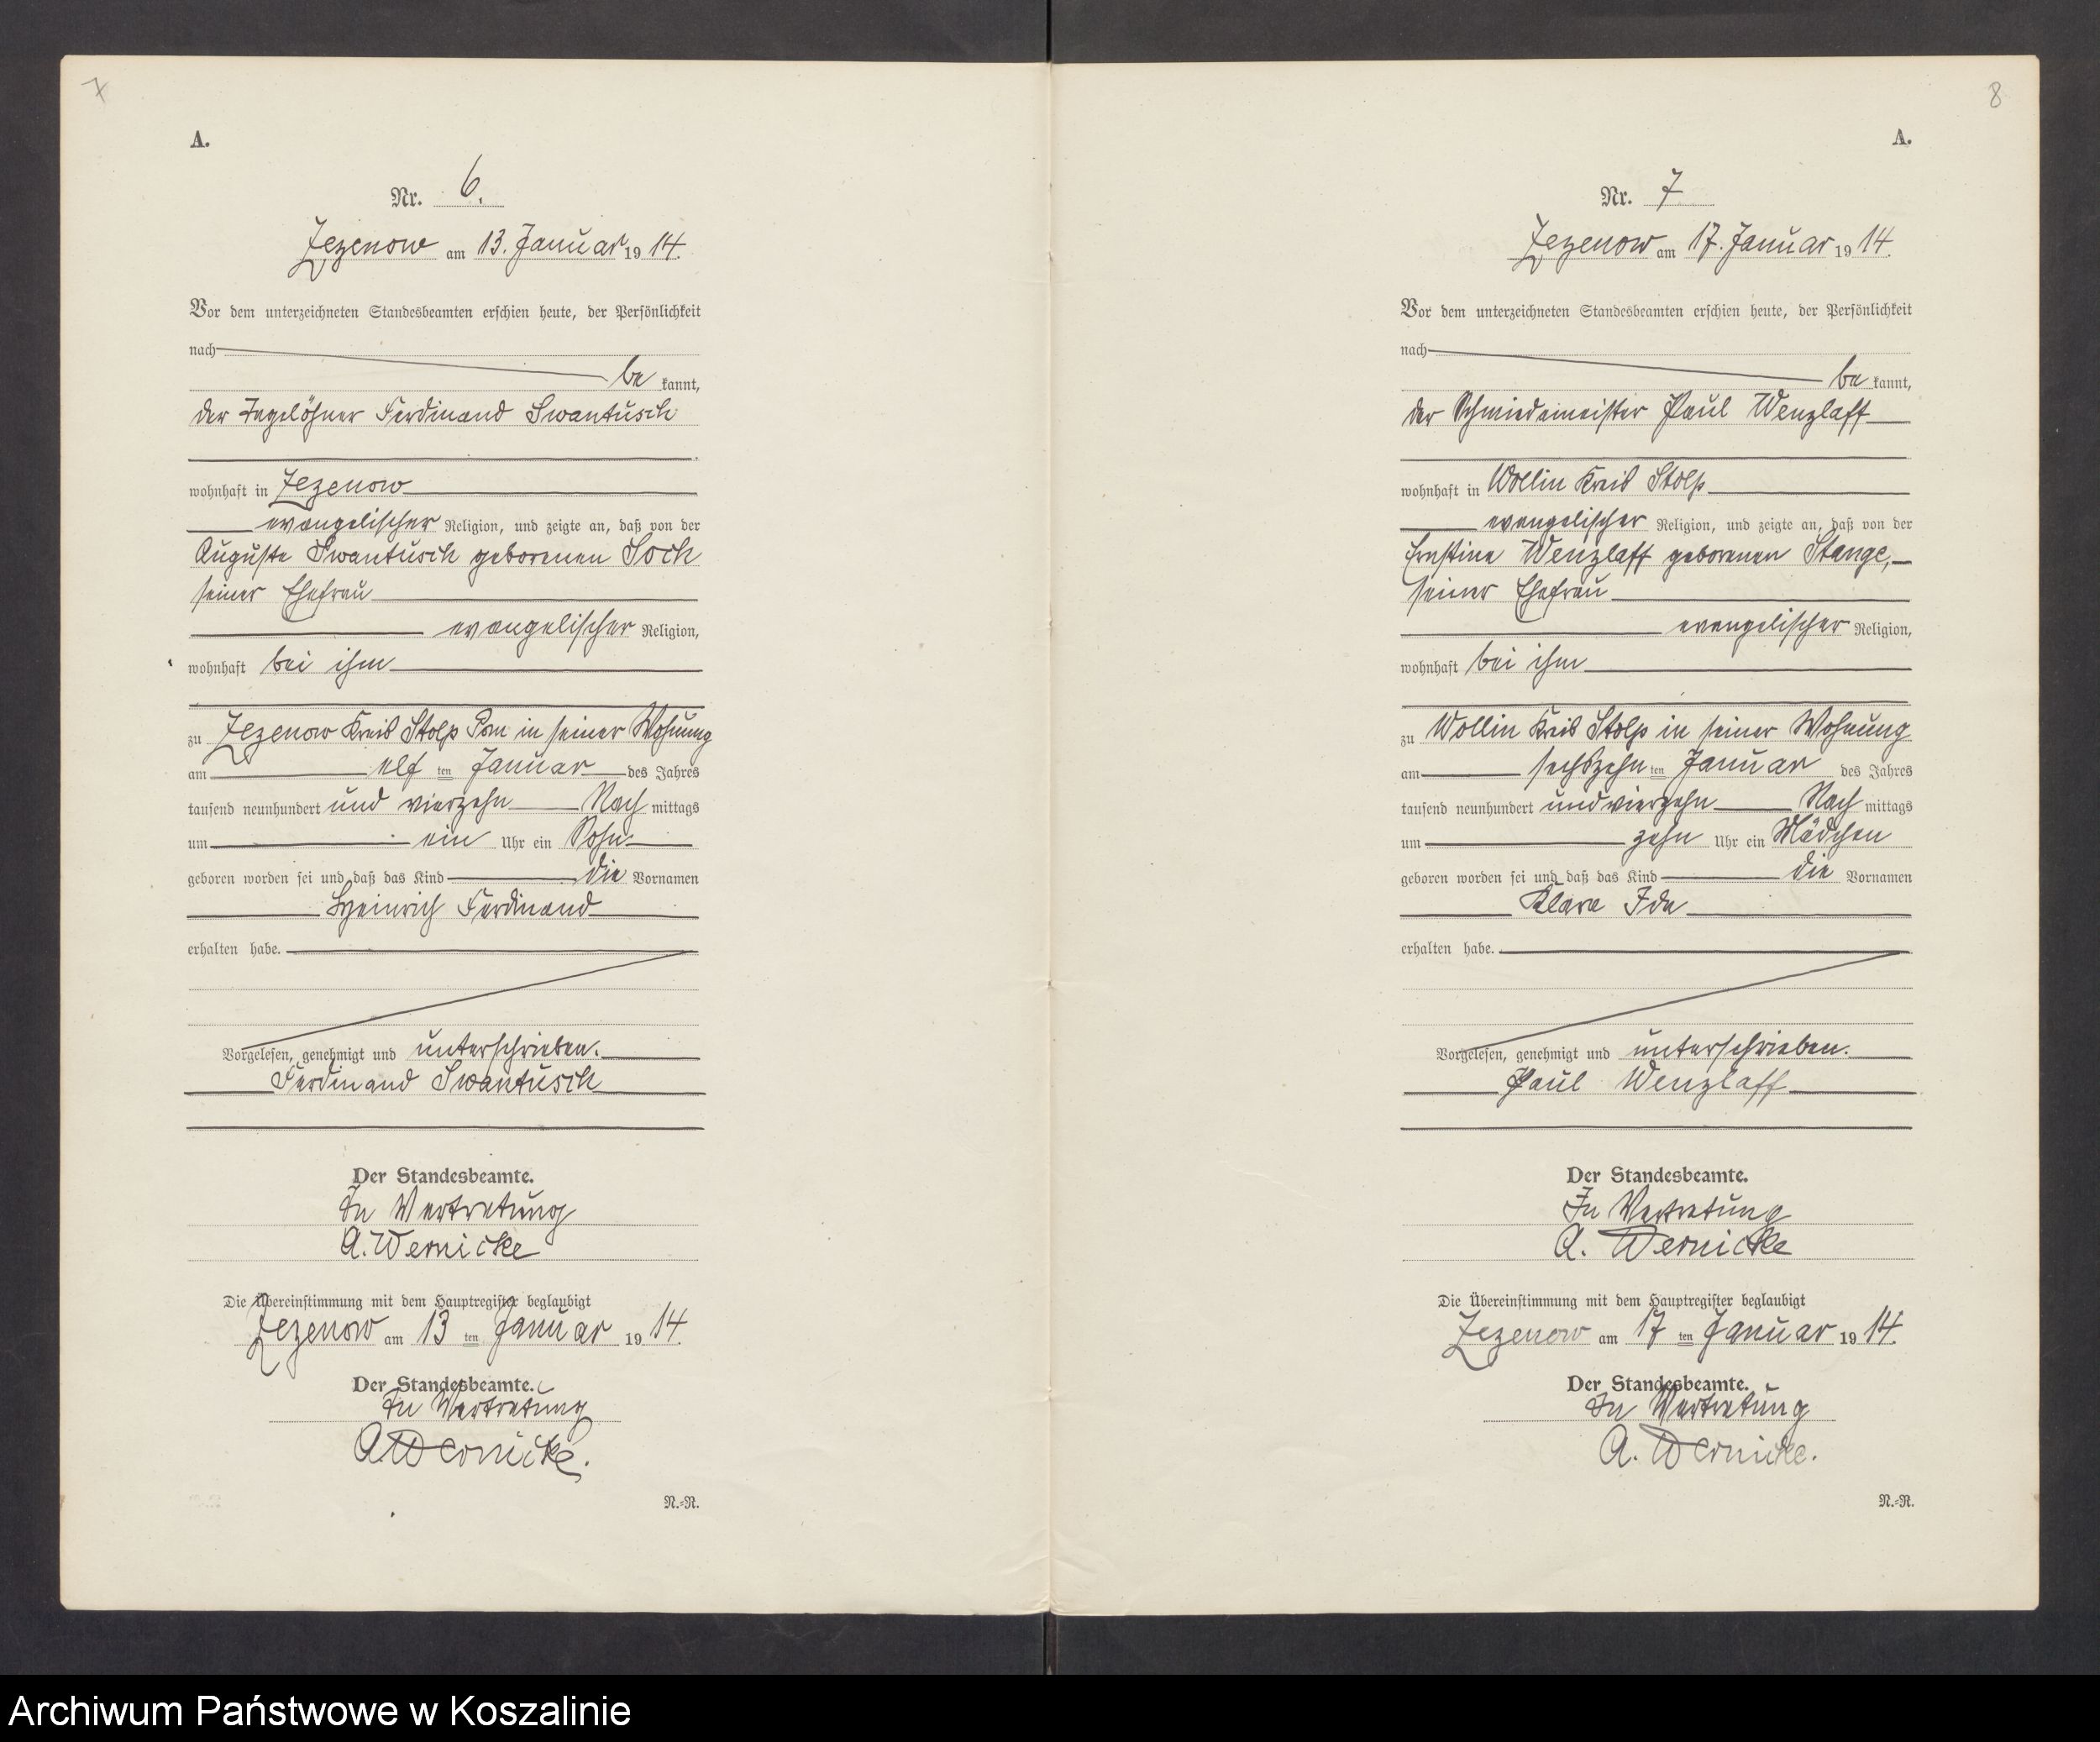 7
A.
Nr. 6.
Zezenow am 13. Januar 1914.
Vor dem unterzeichneten Standesbeamten erschien heute, der Persönlichkeit
nach
be kannt,
der Tagelöhner Ferdinand Swantusch
wohnhaft in Zezenow
evangelischer Religion, und zeigte an, daß von der
Auguste Swantusch geborenen Sock
seiner Ehefrau
evangelischer Religion,
wohnhaft bei ihm
zu Zezenow Kreis Stolp Pom in seiner Wohnung
am elf ten Januar des Jahres
tausend neunhundert und vierzehn Nach mittags
um ein Uhr ein Sohn
geboren worden sei und daß das Kind die Vornamen
Heinrich Ferdinand
erhalten habe.
Vorgelesen, genehmigt und unterschrieben.
Ferdinand Swantusch
Der Standesbeamte.
In Vertretung
A. Wernicke
Die Übereinstimmung mit dem Hauptregister beglaubigt
Zezenow am 13 ten Januar 1914.
Der Standesbeamte.
In Vertretung
A Wernicke.
N.=R.
8
A.
Nr. 7
Zezenow am 17. Januar 1914.
Vor dem unterzeichneten Standesbeamten erschien heute, der Persönlichkeit
nach
be kannt,
der Schmiedemeister Paul Wenzlaff
wohnhaft in Wollin Kreis Stolp
evangelischer Religion, und zeigte an, daß von der
Ernstine Wenzlaff geborenen Stange,
seiner Ehefrau
evangelischer Religion,
wohnhaft bei ihm
zu Wollin Kreis Stolp in seiner Wohnung
am sechszehn ten Januar des Jahres
tausend neunhundert und vierzehn Nach mittags
um zehn Uhr ein Mädchen
geboren worden sei und daß das Kind die Vornamen
Klara Ida
erhalten habe.
Vorgelesen, genehmigt und unterschrieben.
Paul Wenzlaff
Der Standesbeamte.
In Vertretung
A. Wernicke
Die Übereinstimmung mit dem Hauptregister beglaubigt
Zezenow am 17 ten Januar 1914.
Der Standesbeamte.
In Vertretung
A. Wernicke.
N.=R.
Archiwum Państwowe w Koszalinie